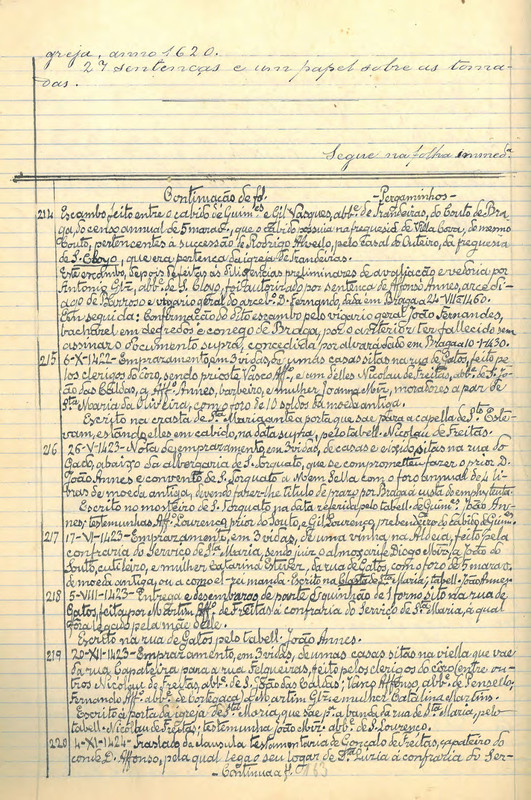 greja, anno 1620.
27 sentenças e um papel sobre as toma-
das.
Segue na folha immed.ª
Continuação de fol.es - Pergaminhos -
214 Escambo, feito entre o cabido de Guim.es e Gil Vasques, abb.e de Frandeiras, do Couto de Bra-
ga, do censo annual de 5 marav.os, que o cabido possuia na freguesia de Villa Cova, do mesmo
Couto, pertencentes a successão de Rodrigo Alvedo, pelo casal do Outeiro, da freguesia
de S. Cloyo, que era pertença da igreja de Frandeiras.
Este escambo, depois de feitas as diligencias preliminares de avaliação e vedoria por
Antonio Glz, abb.e de S. Cloyo, foi autorizado por sentença de Affonso Annes, arcedi-
ago de Barroso e vigario geral do arceb.o D. Fernando, data em Braga a 24-VII-1460.
Em seguida: Confirmação do dito escambo pelo vigario geral João Fernandes,
bacharel em degredos e conego de Braga, por o anterior ter fallecido sem
assinar o documento supra, concedida por alvará dado em Braga a 10-1430.
215 6-X-1422 - Emprazamento, em 3 vidas de umas casas sitas na rua de Gatos, feito pe-
los clerigos do coro, sendo prioste Vasco Aff.o, e um delles Nicolau de Freitas, abb.e de S. Jo-
ão das Caldas, a Aff.o Annes, barbeiro, e mulher Joanna Miz, moradores a par de
S.ta Maria da Oliveira, com o foro de 10 soldos da moeda antiga.
Escrito na crasta de S.ta Maria, ante a porta que sae para a capella de S.to Este-
vam, estando elles em cabido, na data supra, pelo tabell. Nicolau de Freitas.
216 26-V-1423 - Nota de emprazamento, em 3 vidas, de casas e exido sitas na rua do
Gado, abaixo da albergaria de S. Torquato, que se comprometteu fazer o prior D.
João Annes e convento de S. Torquato a Mem Sella com o foro annual de 4 li-
bras de moeda antiga, devendo fazer-lhe titulo de prazo por Braga á custa do emphyteuta.
Escrito no mosteiro de S. Torquato na data referida pelo tabell. de Guim.es João An-
nes; testemunhas Aff.o Lourenço, prior do Souto, e Gil Lourenço, prebendeiro do cabido de Guim.es
217 17-VI-1423 - Emprazamento, em 3 vidas, de uma vinha na Aldeia, feito pela
confraria do Serviço de S.ta Maria, sendo juiz o almoxarife Diogo Miz, a João do
Souto, cutileiro, e mulher Catarina Esteve, da rua de Gatos, com o foro de 5 marav.os
de moeda antiga, ou a como el-rei manda. - Escrito na Claustra de S.ta Maria; tabell. João Annes.
218 5-VIII-1423 - Entrega e desembargo de parte do quinção de 1 forno sito na rua de
Gatos, feita por Martim Aff.o de Freitas á confraria do Serviço de S.ta Maria, á qual
fora legado pela mãe delle.
Escrito na rua de Gatos pelo tabell. João Annes.
219 20-XI-1423 - Emprazamento, em 3 vidas, de umas casas sitas na viella que vae
da rua Çapateira para a rua Felgueiras, feito pelos clerigos do coro (entre ou-
tros Nicolau de Freitas, abb.e de S. João das Caldas; Vasco Affonso, abb.e de Ponsello;
Fernando Aff.o, abb.e de Corlegaça) a Martim Glz e mulher Catalina Martins.
Escrito á porta da igreja de S.ta Maria, que sae p.ª a banda da rua de S.ta Maria, pelo
tabell. Nicolau de Freitas; testemunha João Miz, abb.e de S. Lourenço.
220 4-XI-1424 - Traslado da clausula testamentaria de Gonçalo de Freitas, çapateiro do
conde D. Affonso, pela qual lega o seu logar de S.ta Luzia á confraria do Ser-
- Continua a f. 163